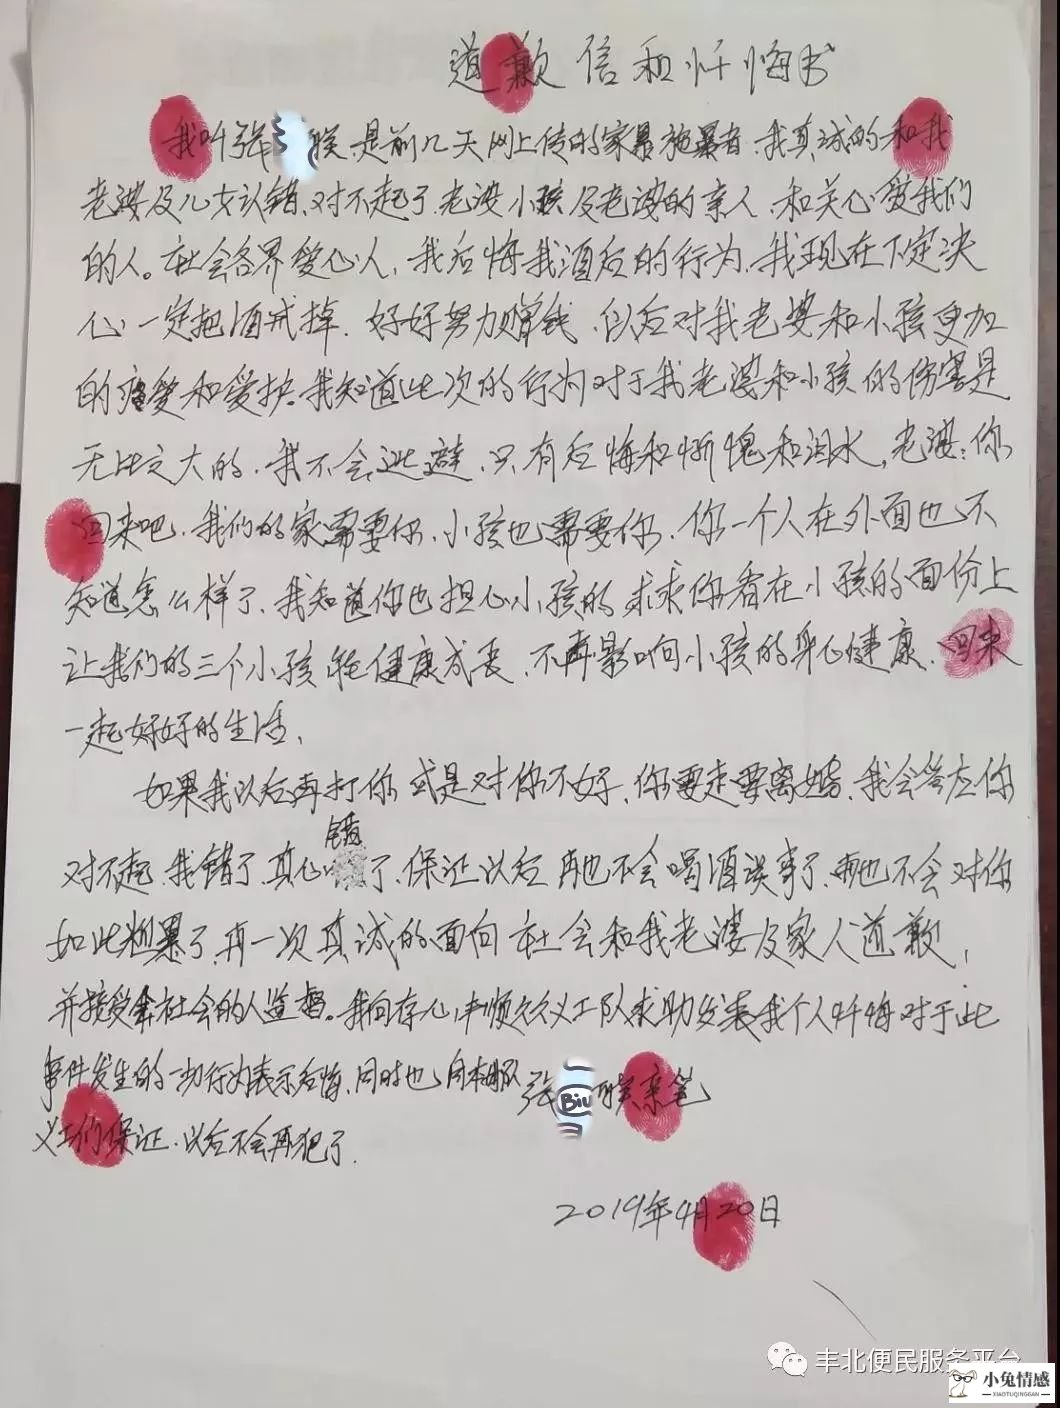 道歉信和忏悔书
我叫张 联是前几天网上传的家暴施暴者、我真诚的和我
老婆及儿女认错、对不起了、老婆小孩及老婆的亲人、和关心爱我们
的人。社会各界爱心人、我后悔我酒后的行为、我现在下定决
心一定把酒戒掉、好好努力赚钱、以后对我老婆和小孩更加
的疼爱和爱护、我知道此次的行为对于我老婆和小孩的伤害是
无比之大的、我不会逃避、只有后悔和惭愧和泪水,老婆:你
回来吧、我们的家需要你、小孩也需要你、你一个人在外面也不
知道怎么样了、我知道你也担心小孩的求求你看在小孩的面份上
让我们的三个小孩能健康成长、不再影响小孩的身心健康、回来
一起好好的生活、
如果我以后再打你或是对你不好、你要走要离婚、我会答应你
对不起、我错了、真心错了、保证以后再也不会喝酒误事了、再也不会对你
如此粗暴了、再一次真诚的面向社会和我老婆及家人道歉,
并接受社会的人监督。我向存心丰顺义工队求助发表我个人忏悔对于此
事件发生的一切行为表示后悔、同时也向
张 Biu 联亲笔
义工们保证、以后不会再犯了
2019年4月20日
丰北便民服务平台
小兔情感
XIAOTUQINGGAN